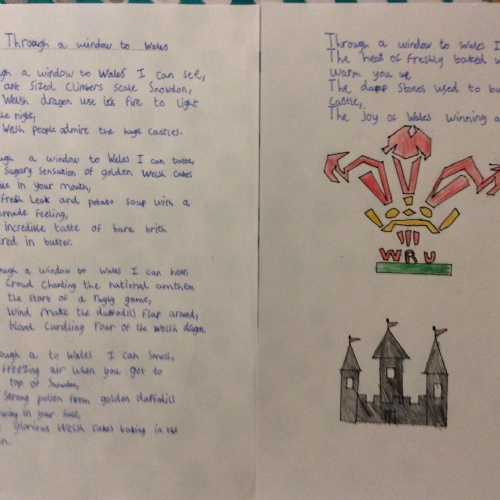 Through a window to Wales
ugh a window to Wales I can see,
ant Sized Climbers scale Snowdon,
Welsh dragon use its fire to light
the night,
Welsh people admire the huge Castles.
ough a window to Wales I can taste,
Sugary sensation of golden Welsh Cakes
in your mouth,
fresh leak and potato soup with a
made feeling,
incredible taste of bara brith
red in butter.
ough a window to Wales I can hear,
Crowd Chanting the national anthem
the start of a rugby game,
Wind make the daffodils flap around,
blood curdling roar of the Welsh dragon
ough a to Wales I can Smell,
freezing air when you get to
top of Snowdon,
Strong pollen from golden daffodils
wing in your face,
glorious Welsh Cakes baking in the
n.
Through a window to Wales I
The heat of freshly baked w
warm you up
The stones used to bu
Castle,
The Joy of Wales winning a
WRU